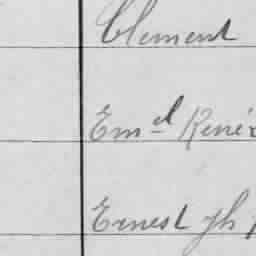 Clement
Em.el René
Ernest Jh